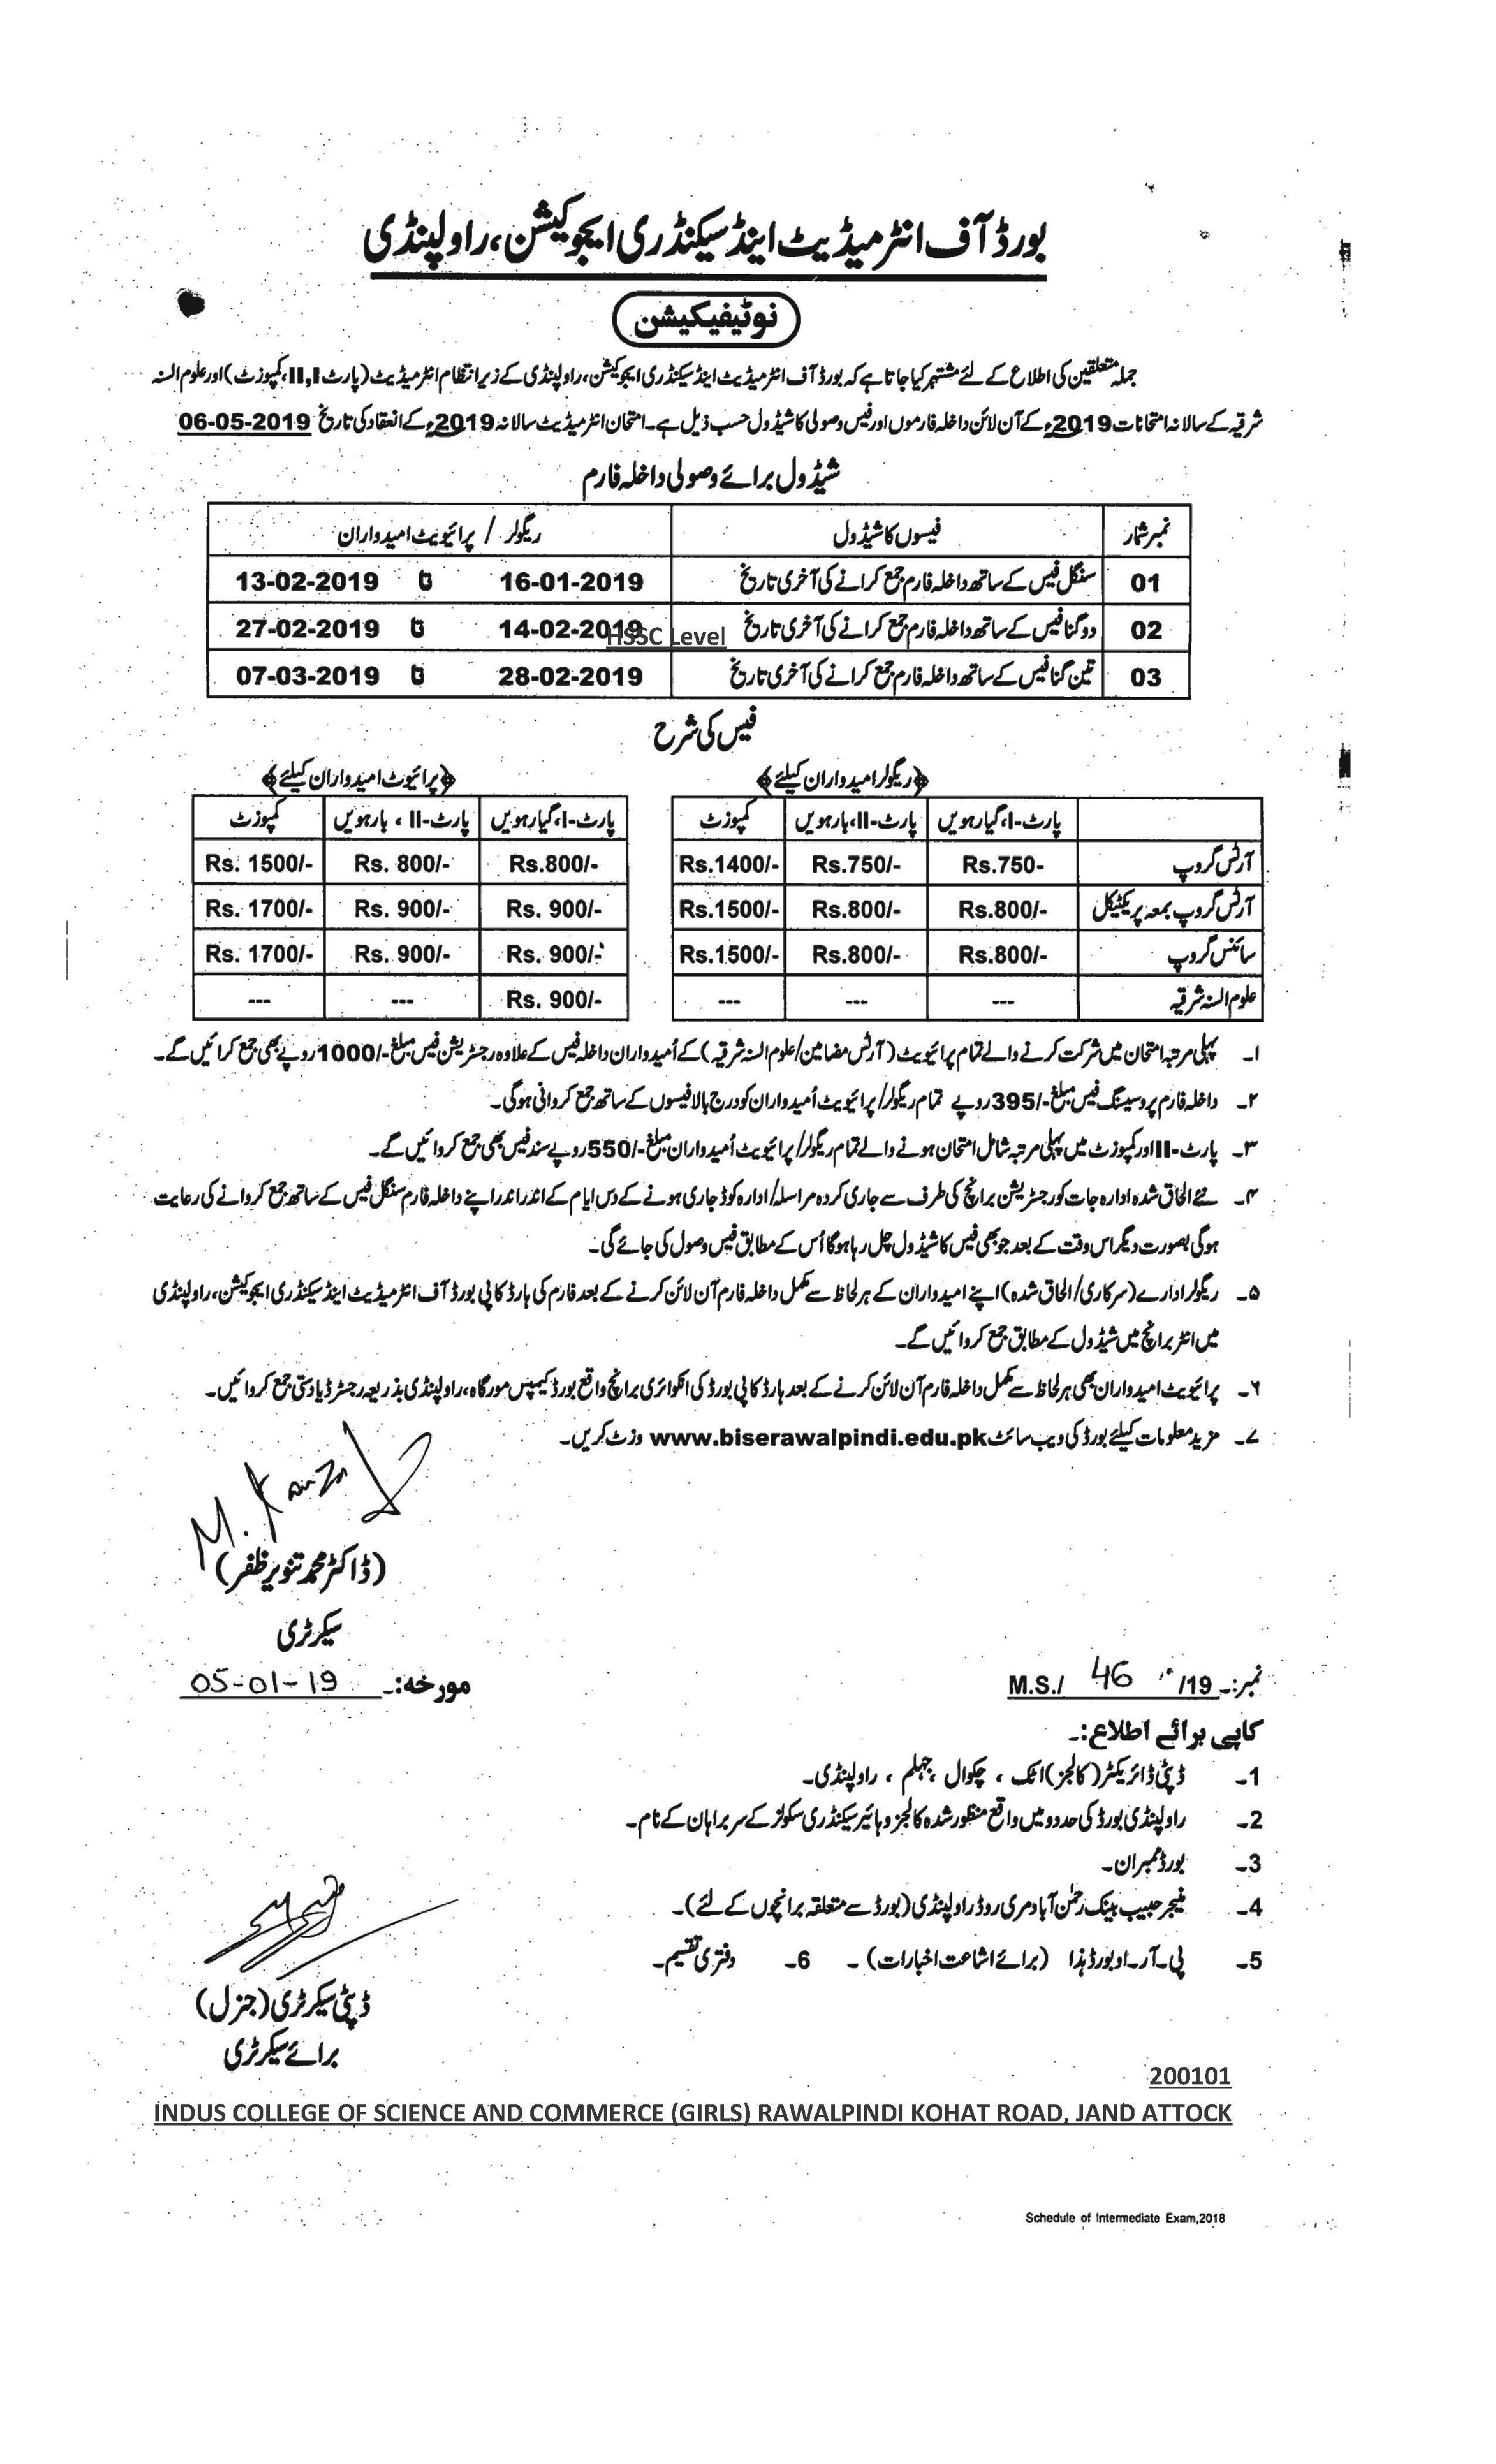 بورڈ آف انٹرمیڈیٹ اینڈ سیکنڈری ایجوکیشن، راولپنڈی
نوٹیفیکیشن
جملہ متعلقین کی اطلاع کے لئے مشتہر کیا جاتا ہے کہ بورڈ آف انٹرمیڈیٹ اینڈ سیکنڈری ایجوکیشن، راولپنڈی کے زیر انتظام انٹرمیڈیٹ (پارٹ II,I، کمپوزٹ) اور علوم السنہ
شرقیہ کے سالانہ امتحانات 2019ء کے آن لائن داخلہ فارموں اور فیس وصولی کا شیڈول حسب ذیل ہے۔ امتحان انٹرمیڈیٹ سالانہ 2019ء کے انعقاد کی تاریخ 06-05-2019
شیڈول برائے وصولی داخلہ فارم
نمبر شمار فیسوں کا شیڈول ریگولر / پرائیویٹ امیدواران
01 سنگل فیس کے ساتھ داخلہ فارم جمع کرانے کی آخری تاریخ 16-01-2019 تا 13-02-2019
02 دوگنا فیس کے ساتھ داخلہ فارم جمع کرانے کی آخری تاریخ 14-02-2019 تا 27-02-2019
HSSC Level
03 تین گنا فیس کے ساتھ داخلہ فارم جمع کرانے کی آخری تاریخ 28-02-2019 تا 07-03-2019
فیس کی شرح
﴿ریگولر امیدواران کیلئے﴾ ﴿پرائیوٹ امیدواران کیلئے﴾
پارٹ-I، گیارہویں پارٹ-II، بارہویں کمپوزٹ پارٹ-I، گیارہویں پارٹ-II ، بارہویں کمپوزٹ
آرٹس گروپ Rs.750- Rs.750/- Rs.1400/- Rs.800/- Rs. 800/- Rs. 1500/-
آرٹس گروپ بمعہ پریکٹیکل Rs.800/- Rs.800/- Rs.1500/- Rs. 900/- Rs. 900/- Rs. 1700/-
سائنس گروپ Rs.800/- Rs.800/- Rs.1500/- Rs. 900/- Rs. 900/- Rs. 1700/-
علوم السنہ شرقیہ --- --- --- Rs. 900/- --- ---
۱۔ پہلی مرتبہ امتحان میں شرکت کرنے والے تمام پرائیویٹ (آرٹس مضامین/علوم السنہ شرقیہ) کے اُمیدواران داخلہ فیس کے علاوہ رجسٹریشن فیس مبلغ -/1000 روپے بھی جمع کرائیں گے۔
۲۔ داخلہ فارم پروسیسنگ فیس مبلغ -/395 روپے تمام ریگولر/پرائیویٹ اُمیدواران کو درج بالا فیسوں کے ساتھ جمع کروانی ہوگی۔
۳۔ پارٹ-II اور کمپوزٹ میں پہلی مرتبہ شامل امتحان ہونے والے تمام ریگولر/پرائیویٹ اُمیدواران مبلغ -/550 روپے سند فیس بھی جمع کروائیں گے۔
۴۔ نئے الحاق شدہ ادارہ جات کو رجسٹریشن برانچ کی طرف سے جاری کردہ مراسلہ/ادارہ کوڈ جاری ہونے کے دس ایام کے اندر اندر اپنے داخلہ فارم سنگل فیس کے ساتھ جمع کروانے کی رعایت
ہوگی بصورت دیگر اس وقت کے بعد جو بھی فیس کا شیڈول چل رہا ہوگا اُس کے مطابق فیس وصول کی جائے گی۔
۵۔ ریگولر ادارے (سرکاری/الحاق شدہ) اپنے امیدواران کے ہر لحاظ سے مکمل داخلہ فارم آن لائن کرنے کے بعد فارم کی ہارڈ کاپی بورڈ آف انٹرمیڈیٹ اینڈ سیکنڈری ایجوکیشن، راولپنڈی
میں انٹر برانچ میں شیڈول کے مطابق جمع کروائیں گے۔
۶۔ پرائیویٹ امیدواران بھی ہر لحاظ سے مکمل داخلہ فارم آن لائن کرنے کے بعد ہارڈ کاپی بورڈ کی انکوائری برانچ واقع بورڈ کیمپس مورگاہ، راولپنڈی بذریعہ رجسٹرڈ یا دستی جمع کروائیں۔
۷۔ مزید معلومات کیلئے بورڈ کی ویب سائٹ www.biserawalpindi.edu.pk وزٹ کریں۔
(ڈاکٹر محمد تنویر ظفر)
سیکرٹری
نمبر:۔ M.S./ 46 /19 مورخہ:۔ 05-01-19
کاپی برائے اطلاع:۔
1۔ ڈپٹی ڈائریکٹر (کالجز) اٹک ، چکوال ، جہلم ، راولپنڈی۔
2۔ راولپنڈی بورڈ کی حدود میں واقع منظور شدہ کالجز و ہائیر سیکنڈری سکولز کے سربراہان کے نام۔
3۔ بورڈ ممبران۔
4۔ منیجر حبیب بینک رحمٰن آباد مری روڈ راولپنڈی (بورڈ سے متعلقہ برانچوں کے لئے)۔
5۔ پی۔آر۔او بورڈ ہذا (برائے اشاعت اخبارات) ۔ 6۔ دفتری تقسیم۔
ڈپٹی سیکرٹری (جنرل)
برائے سیکرٹری
200101
INDUS COLLEGE OF SCIENCE AND COMMERCE (GIRLS) RAWALPINDI KOHAT ROAD, JAND ATTOCK
Schedule of Intermediate Exam,2018